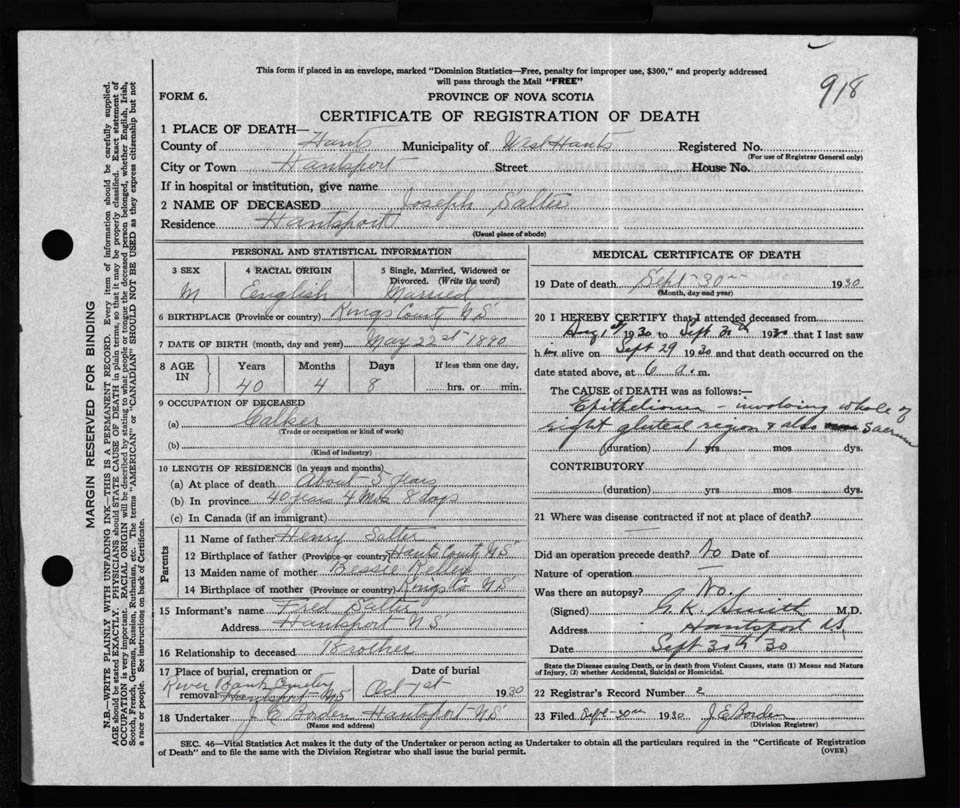 918
This form if placed in an envelope, marked "Dominion Statistics—Free, penalty for improper use, $300," and properly addressed
will pass through the Mail "FREE"
FORM 6.
PROVINCE OF NOVA SCOTIA
CERTIFICATE OF REGISTRATION OF DEATH
1 PLACE OF DEATH—
County of Hants Municipality of West Hants Registered No.
(For use of Registrar General only)
City or Town Hantsport Street House No.
If in hospital or institution, give name
2 NAME OF DECEASED Joseph Salter
Residence Hantsport
(Usual place of abode)
PERSONAL AND STATISTICAL INFORMATION
3 SEX 4 RACIAL ORIGIN 5 Single, Married, Widowed or
Divorced. (Write the word)
M English Married
6 BIRTHPLACE (Province or country) Kings County N S
7 DATE OF BIRTH (month, day and year) May 22st 1890
8 AGE IN Years Months Days If less than one day,
40 4 8 hrs. or min.
9 OCCUPATION OF DECEASED
(a)
(Trade or occupation or kind of work)
(b)
(Kind of industry)
10 LENGTH OF RESIDENCE (in years and months)
(a) At place of death About 5 Years
(b) In province 40 years 4 Mos 8 days
(c) In Canada (if an immigrant)
Parents
11 Name of father Henry Salter
12 Birthplace of father (Province or country) Hants County N.S
13 Maiden name of mother Bessie Kelley
14 Birthplace of mother (Province or country) Kings Co N.S
15 Informant's name Fred Salter
Address Hantsport N S
16 Relationship to deceased Brother
17 Place of burial, cremation or Date of burial
removal River Bank Hantsport N S Oct 1st 1930
18 Undertaker J. E Borden Hantsport N S
(Name and address)
MEDICAL CERTIFICATE OF DEATH
19 Date of death Sept 30th 1930
(Month, day and year)
20 I HEREBY CERTIFY that I attended deceased from
Aug 1st 1930 to Sept 30th 1930 that I last saw
him alive on Sept 29 1930 and that death occurred on the
date stated above, at 6 a.m.
The CAUSE of DEATH was as follows:—
Epithelioma - involving whole of
right gluteal region & also sacrum
(duration) 1 yrs mos dys.
CONTRIBUTORY
(duration) yrs mos dys.
21 Where was disease contracted if not at place of death?
Did an operation precede death? No Date of
Nature of operation
Was there an autopsy? No.
(Signed) G. K. Smith M.D.
Address Hantsport N.S.
Date Sept 30th 30
State the Disease causing Death, or in death from Violent Causes, state (1) Means and Nature
of Injury, (2) whether Accidental, Suicidal or Homicidal.
22 Registrar's Record Number 2
23 Filed Sept 30th 1930 J. E Borden
(Division Registrar)
SEC. 46—Vital Statistics Act makes it the duty of the Undertaker or person acting as Undertaker to obtain all the particulars required in the "Certificate of Registration
of Death" and to file the same with the Division Registrar who shall issue the burial permit. (OVER)
MARGIN RESERVED FOR BINDING
N.B.—WRITE PLAINLY WITH UNFADING INK—THIS IS A PERMANENT RECORD. Every item of information should be carefully supplied.
AGE should be stated EXACTLY. PHYSICIANS should STATE CAUSE OF DEATH in plain terms, so that it may be properly classified. Exact statement of
OCCUPATION is very important. RACIAL ORIGIN will be described by stating to what people or tongue the deceased person belonged, whether English, Irish,
Scotch, French, German, Russian, Ruthenian, etc. The terms "AMERICAN" or "CANADIAN" SHOULD NOT BE USED as they express citizenship but not
a race or people. See instructions on back of Certificate.